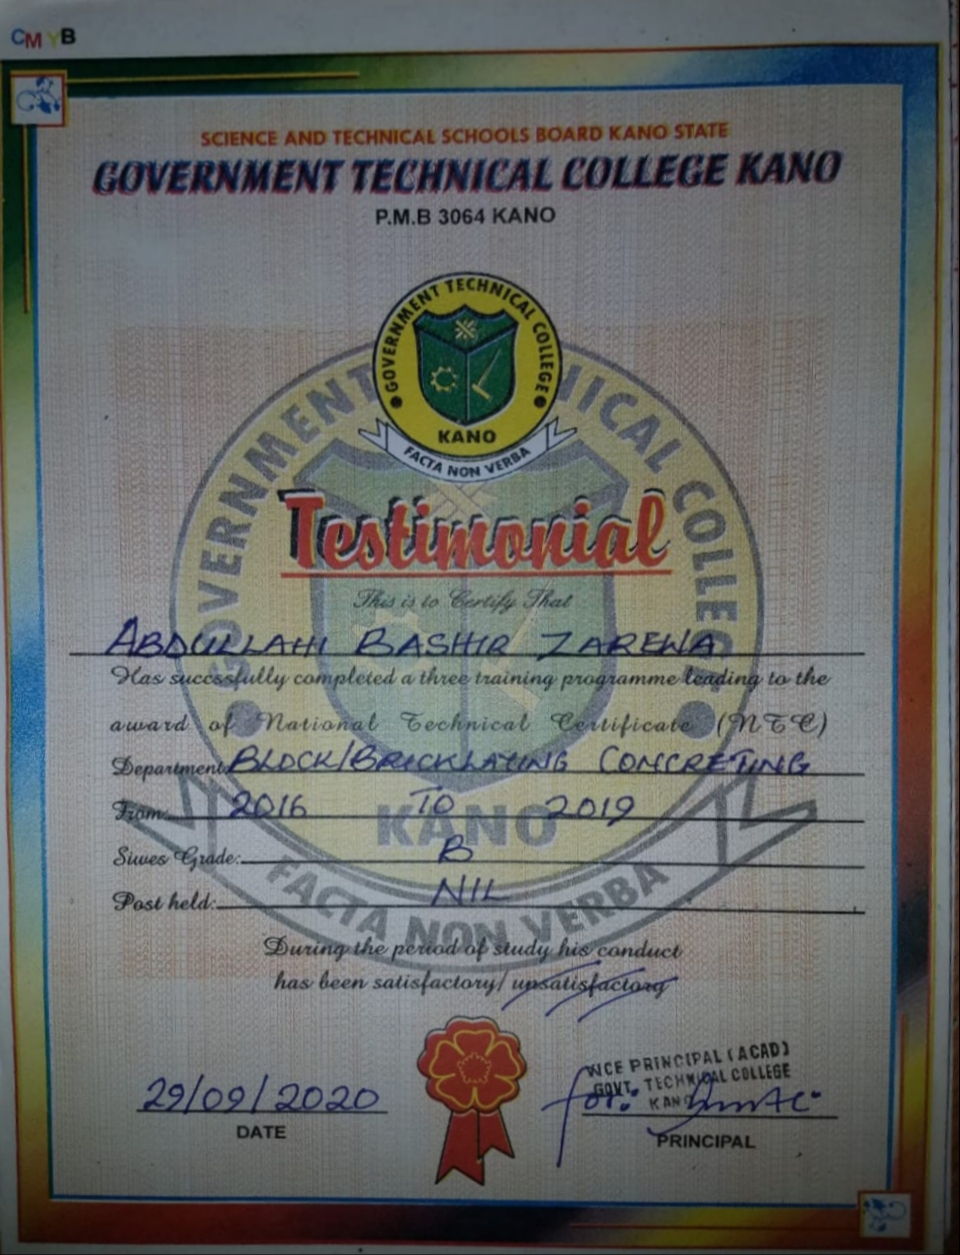 CMYB
SCIENCE AND TECHNICAL SCHOOLS BOARD KANO STATE
GOVERNMENT TECHNICAL COLLEGE KANO
P.M.B 3064 KANO
GOVERNMENT TECHNICAL COLLEGE
KANO
FACTA NON VERBA
GOVERNMENT TECHNICAL COLLEGE
Testimonial
This is to Certify That
ABDULLAHI BASHIR ZAREWA
Has succssfully completed a three training programme leading to the
award of National Technical Certificate (NTC)
Department: BLOCK/BRICKLAYING CONCRETING
From: 2016 TO 2019
KANO
Siwes Grade: B
Post held: NIL
FACTA NON VERBA
During the period of study his conduct
has been satisfactory/ unsatisfactory
VICE PRINCIPAL (ACAD)
GOVT. TECHNICAL COLLEGE
KANO
29/09/2020 for:
DATE PRINCIPAL